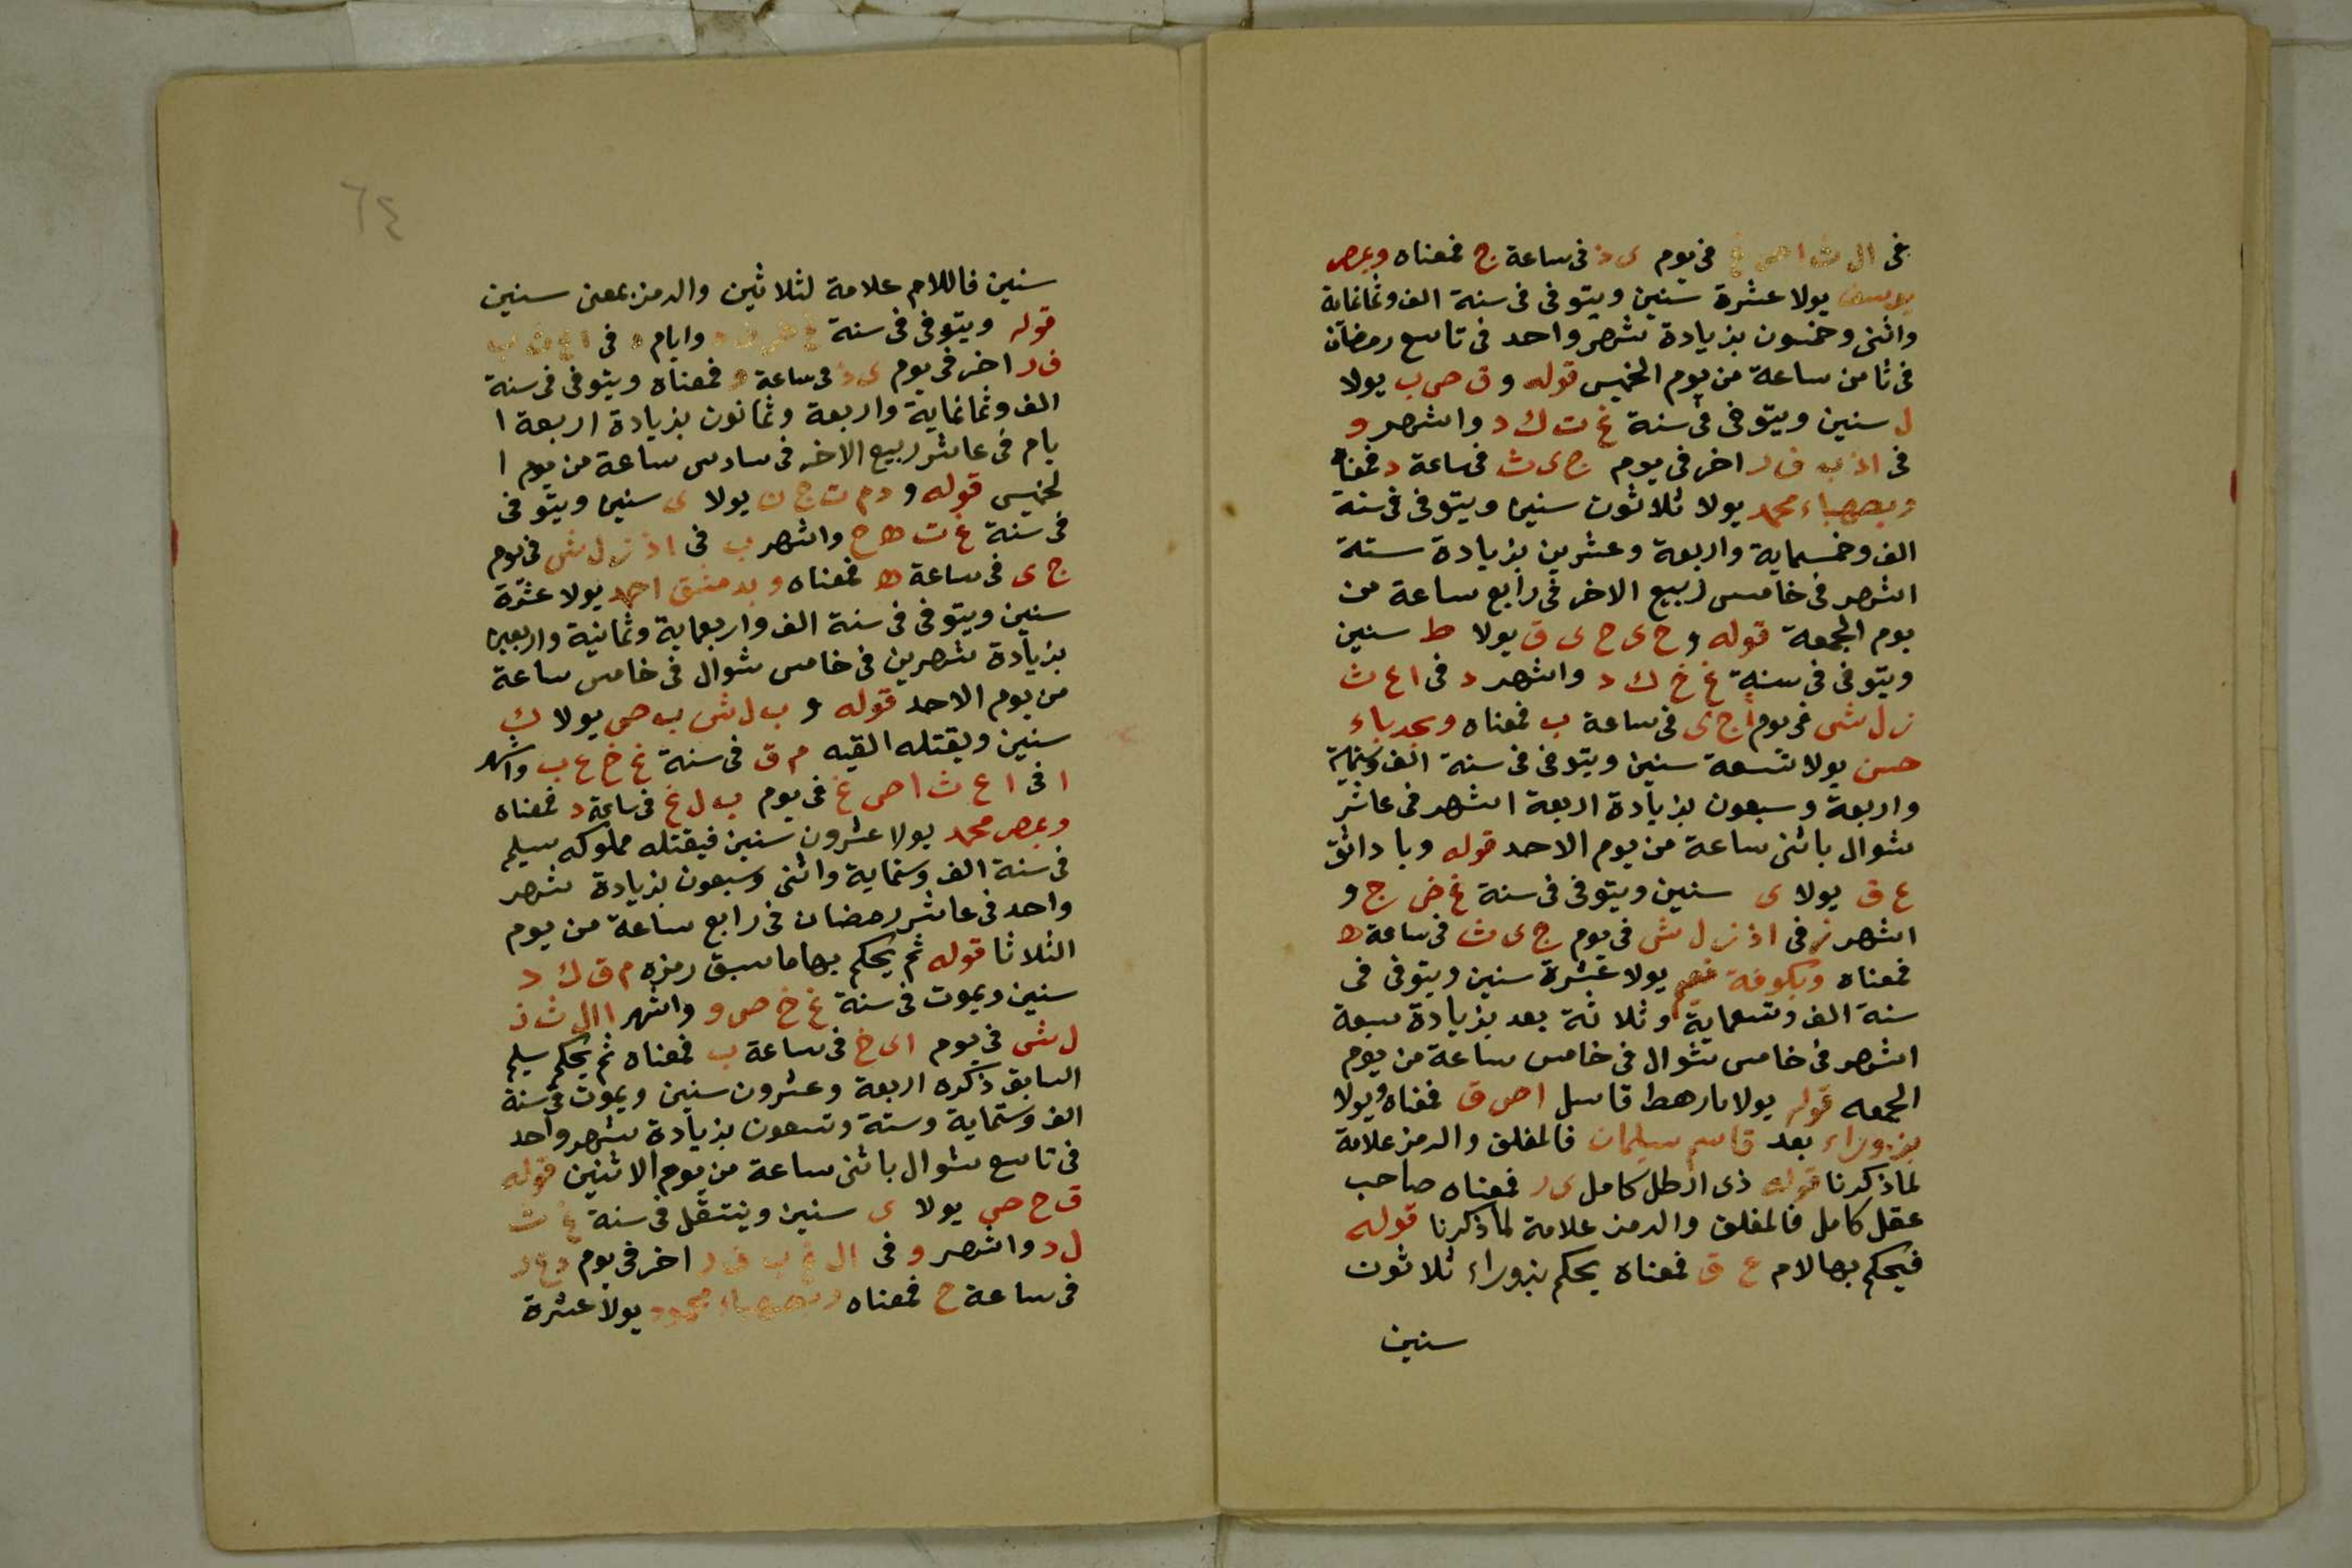 فى ال ث ا ص غ فى يوم ى ذ فى ساعة ج فمعناه وبمصر
يوسف يولا عشرة سنين ويتوفى فى سنة الف وثمانماية
واثنى وخمسون بزيادة شهر واحد فى تاسع رمضان
فى ثامن ساعة من يوم الخميس قوله و ق ص ب يولا
ل سنين ويتوفى فى سنة غ ث ك د واشهر و
فى اذ ب ف ر اخر فى يوم ج ى ث فى ساعة د فمعناه
وبصهباء محمد يولا ثلاثون سنين ويتوفى فى سنة
الف وخمسماية واربعة وعشرين بزيادة ستة
اشهر فى خامس ربيع الاخر فى رابع ساعة من
يوم الجمعة قوله و ح ى ح ى ق يولا ط سنين
ويتوفى فى سنة غ خ ك د واشهر د فى ا ع ث
ز ل ش فى يوم ا ج ى فى ساعة ب فمعناه وبحدباء
حسن يولا تسعة سنين ويتوفى فى سنة الف وستماية
واربعة وسبعون بزيادة اربعة اشهر فى عاشر
شوال باثنى ساعة من يوم الاحد قوله وبا داثق
ع ق يولا ى سنين ويتوفى فى سنة غ ض ج و
اشهر ز فى اذ ز ل ش فى يوم ج ى ث فى ساعة ه
فمعناه وبكوفة يولا عشرة سنين ويتوفى فى
سنة الف وتسعماية وثلاثة بعد بزيادة سبعة
اشهر فى خامس شوال فى خامس ساعة من يوم
الجمعه قوله يولا بارهط قاسل ا ص ق فمعناه ويولا
بزوراء بعد قاسم سليمان فالمغلق والرمز علامة
لما ذكرنا قوله ذى ارطل كامل ى ر فمعناه صاحب
عقل كامل فالمغلق والرمز علامة لما ذكرنا قوله
فيحكم بها لام ع ق فمعناه يحكم بزوراء ثلاثون
سنين
٦٤
سنين فاللام علامة لثلاثين والرمز بمعنى سنين
قوله ويتوفى فى سنة غ ض ف د وايام د فى ا ع ث ب
ف ر اخر فى يوم ى ذ فى ساعة و فمعناه ويتوفى فى سنة
الف وثمانماية واربعة وثمانون بزيادة اربعة ا
يام فى عاشر ربيع الاخر فى سادس ساعة من يوم ا
لخميس قوله و د م ت ج ن يولا ى سنين ويتوفى
فى سنة غ ت ه ح واشهر ب فى اذ ز ل ش فى يوم
ج ى فى ساعة ه فمعناه وبدمشق احمد يولا عشرة
سنين ويتوفى فى سنة الف واربعماية وثمانية واربعين
بزيادة شهرين فى خامس شوال فى خامس ساعة
من يوم الاحد قوله و ب ل ش ب ص يولا ك
سنين ويقتله القيه م ق فى سنة غ خ ع ب واشهر
ا فى ا ع ث ا ص غ فى يوم ب ل غ فى ساعة د فمعناه
وبمصر محمد يولا عشرون سنين فيقتله مملوكه سيلم
فى سنة الف وستماية واثنى وسبعون بزيادة شهر
واحد فى عاشر رمضان فى رابع ساعة من يوم
الثلاثا قوله ثم يحكم بها ما سبق رمزه م ق ك د
سنين ويموت فى سنة غ خ ص و واشهر ا ال ث ز
ل ش فى يوم ا ى خ فى ساعة ب فمعناه ثم يحكم سيلم
السابق ذكره اربعة وعشرون سنين ويموت فى سنة
الف وستماية وستة وتسعون بزيادة شهر واحد
فى تاسع شوال باثنى ساعة من يوم الاثنين قوله
ق ح ص يولا ى سنين وينتقل فى سنة غ ث
ل د واشهر و فى ال غ ب ف ر اخر فى يوم د غ ر
فى ساعة ح فمعناه وبصهباء محمود يولا عشرة